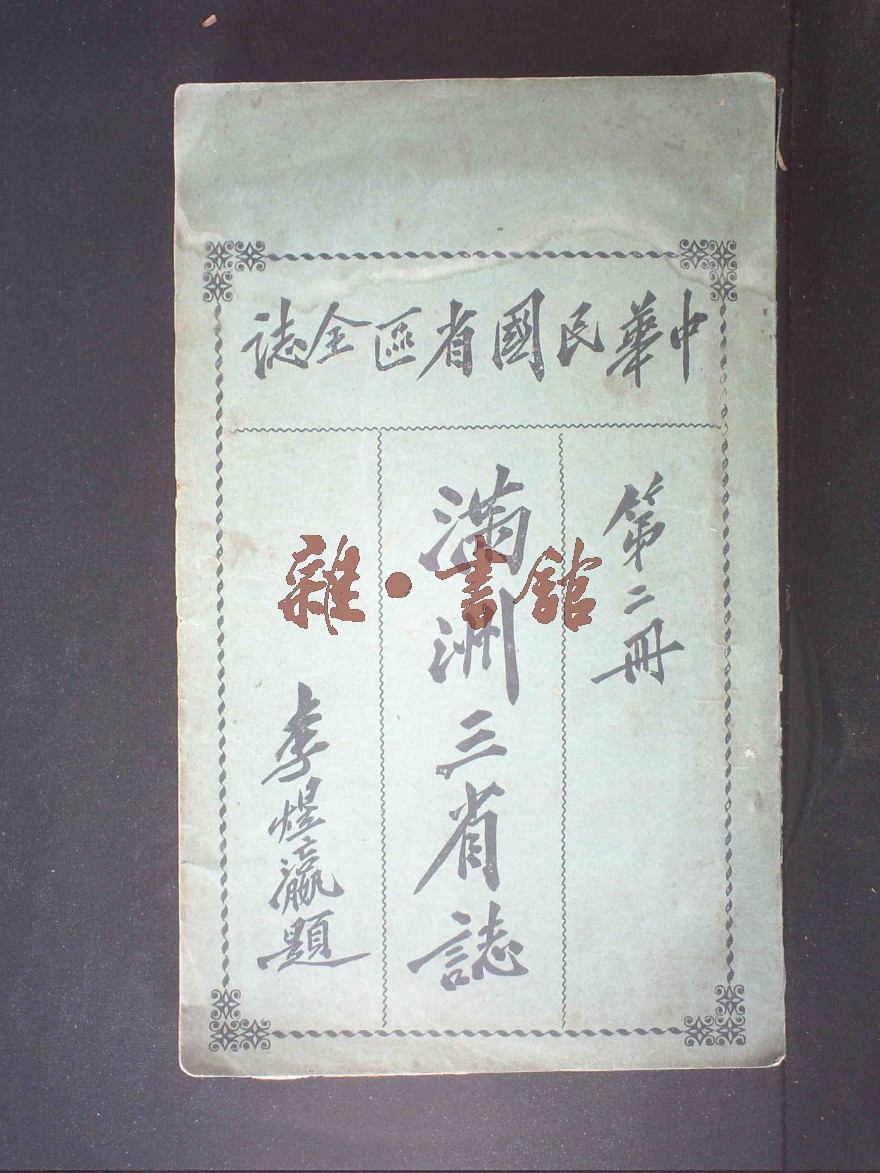 中華民國省區全誌
第二冊
滿洲三省誌
李煜瀛題
雜·書館